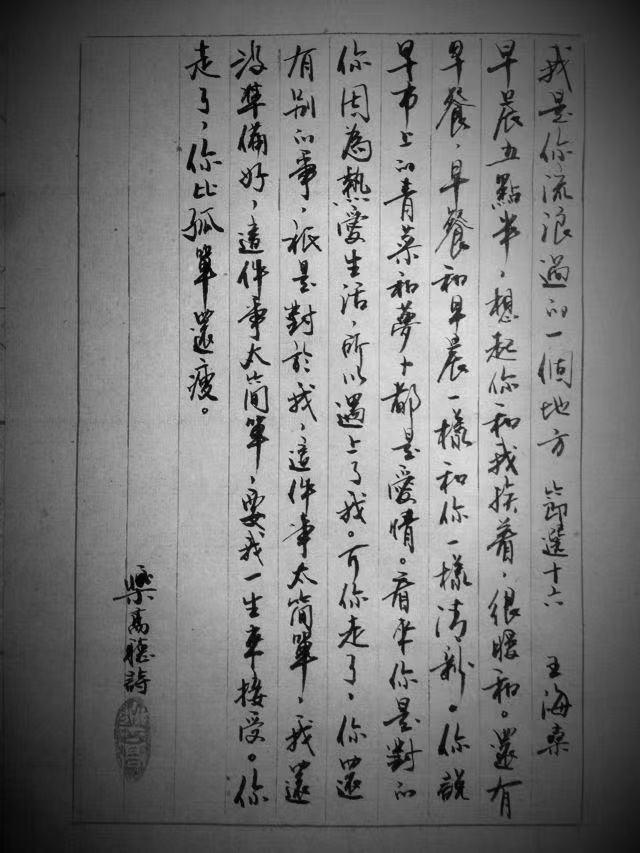 我是你流浪過的一個地方 節選十六 王海桑
早晨五點半，想起你和我挨着，很暖和。還有
早餐，早餐和早晨一樣和你一樣清新。你說
早市上的青菜和蘿卜都是愛情。看來你是對的
你因為熱愛生活，所以遇上了我。可你走了，你還
有别的事，祇是對於我，這件事太簡單，我還
沒準備好，這件事太簡單，要我一生來接受。你
走了，你比孤單還瘦。
樂高聽詩